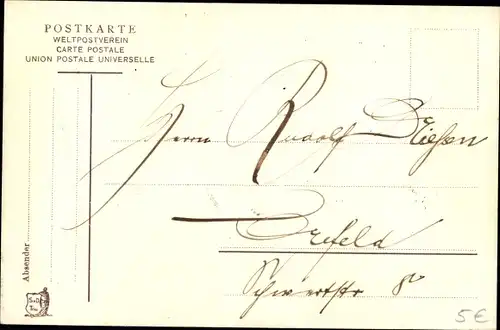 POSTKARTE
WELTPOSTVEREIN
CARTE POSTALE
UNION POSTALE UNIVERSELLE
Herrn Rudolf Drießen
Crefeld
Schwertstr 80
Absender
5€